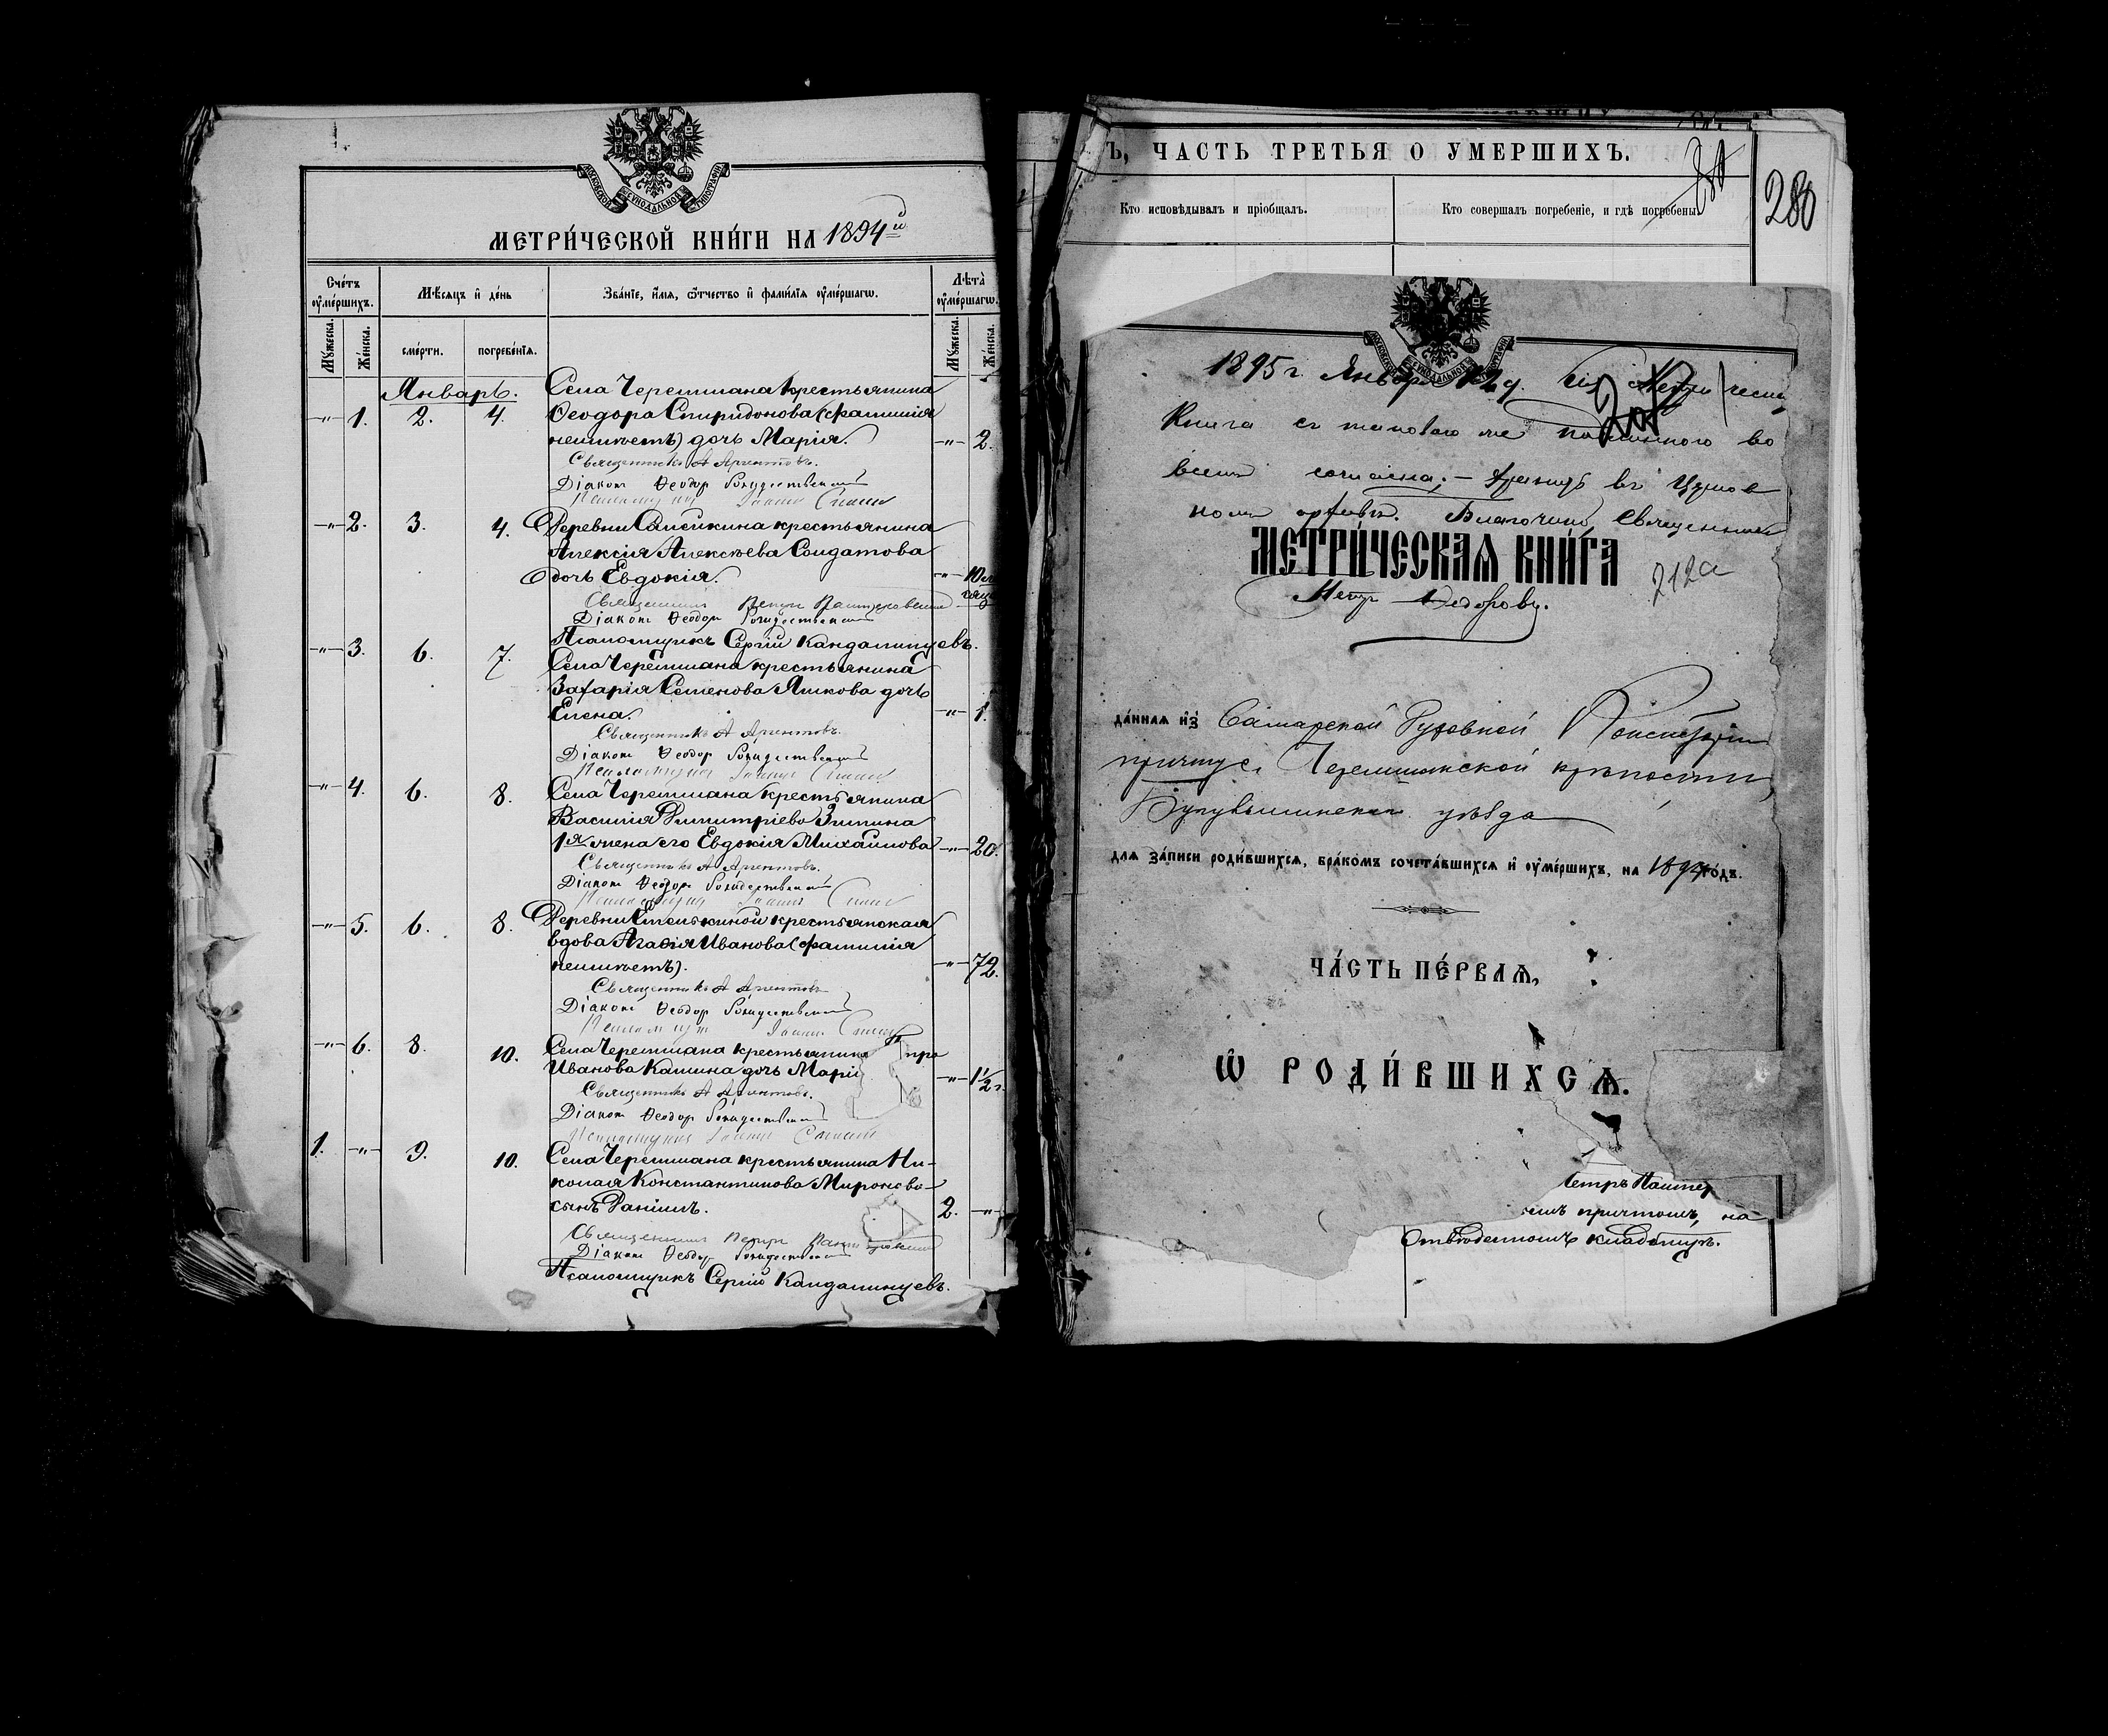 МОСКОВСКОЙ СѴНОДАЛЬНОЙ ТИПОГРАФІИ
МЕТРИ́ЧЕСКОЙ КНИ́ГИ НА 1894й
Сче́тъ ᲂу҆ме́ршихъ.
Мѣ́сяцъ и҆ де́нь
Зва́нїе, и҆́мѧ, ѻ҆́тчество и҆ фами́лїѧ ᲂу҆ме́ршагѡ.
Лѣ́та ᲂу҆ме́ршагѡ.
Мꙋ́жеска.
Же́нска.
сме́рти.
погребе́нїѧ.
Мꙋ́жеска.
Же́нска.
Январь.
Села Черемшана крестьянина
-"- 1. 2. 4. Ѳеодора Спиридонова (фамилія
неимѣетъ) дочь Марія. -"- 2.
Священникъ А Аргентовъ.
Діаконъ Ѳеодор Рождественскій
Псаломщикъ Іоаннъ
-"- 2. 3. 4. Деревни Саперкина крестьянина
Алексія Алексѣева Солдатова
дочь Евдокія. -"- 10 мѣсяц
Священникъ Петръ Пантелеевскій
Діаконъ Ѳеодор Рождественскій
Псаломщикъ Сергій Кандалинцевъ.
-"- 3. 6. 7. Села Черемшана крестьянина
Захарія Семенова Яшкова дочь
Елена. -"- 1.
Священникъ А Аргентовъ.
Діаконъ Ѳеодор Рождественскій
Псаломщикъ Іоаннъ
-"- 4. 6. 8. Села Черемшана крестьянина
Василія Димитріева Зимина
1я жена его Евдокія Михайлова -"- 20.
Священникъ А Аргентовъ.
Діаконъ Ѳеодор Рождественскій
Псаломщикъ Іоаннъ
-"- 5. 6. 8. Деревни Ѣтелькиной крестьянская
вдова Агафія Иванова (фамилія
неимѣетъ). -"- 72.
Священникъ А Аргентовъ
Діаконъ Ѳеодор Рождественскій
Псаломщикъ Іоаннъ
-"- 6. 8. 10. Села Черемшана крестьянина Петра
Иванова Камина дочь Марі -"- 1½ г.
Священникъ А Аргентовъ.
Діаконъ Ѳеодор Рождественскій
Псаломщикъ Іоаннъ
1. -"- 9. 10. Села Черемшана крестьянина Ни-
колая Константинова Миронова
сынъ Даніилъ. 2. -"-
Священникъ Петръ
Діаконъ Ѳеодор Рождественскій
Псаломщикъ Сергій Кандалинцевъ.
Ъ, ЧАСТЬ ТРЕТЬЯ О УМЕРШИХЪ.
Кто исповѣдывалъ и пріобщалъ.
Кто совершалъ погребеніе, и гдѣ погребены.
280
1895 г. Января 12 д. Сія Метрическ
Книга съ таковою же подлинною во
всемъ согласна; – хранить въ Церков
номъ архивѣ. Благочинный Священникъ
МЕТРИ́ЧЕСКАѦ КНИ́ГА
212а
Петръ Ѳедоровъ.
да́ннаѧ и҆з̾ Самарской Духовной Консисторіи
причту с. Черемшанской крѣпости,
Бугульминскаго уѣзда
длѧ за́писи роди́вшихсѧ, бра́комъ сочета́вшихсѧ и҆ ᲂу҆ме́ршихъ, на 1894 го́дъ.
ЧА́СТЬ ПЕ́РВАѦ,
Ѡ҆ РОДИ́ВШИХСѦ.
Петръ Пантел
причтомъ, на
отведенномъ кладбищѣ.